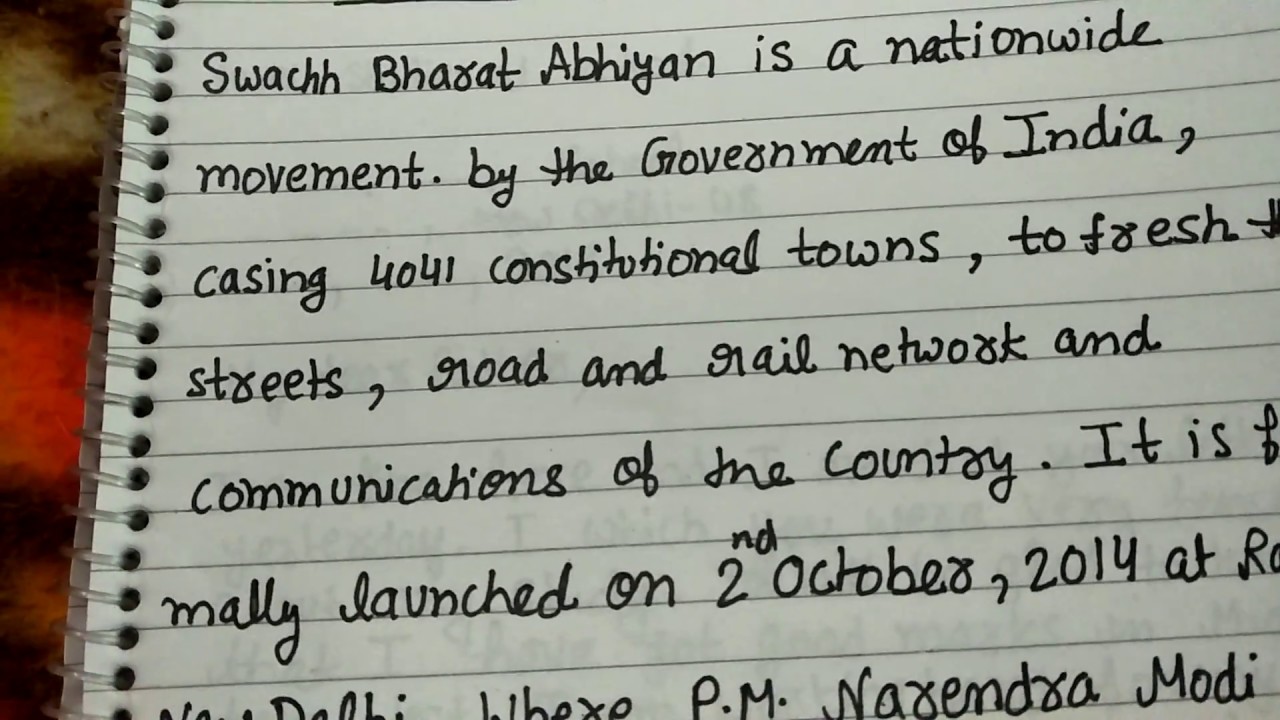 Swachh Bharat Abhiyan is a nationwide
movement. by the Government of India,
casing 4041 constitutional towns, to fresh
streets, road and rail network and
communications of the country. It is
mally launched on 2nd October, 2014 at
Delhi Where P.M. Narendra Modi